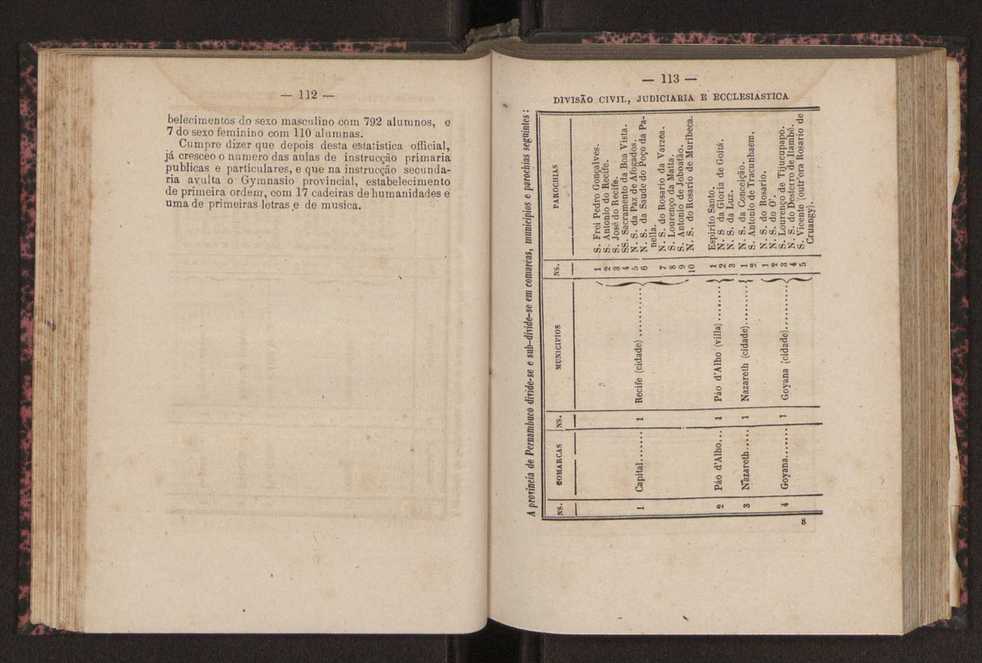 — 112 —
belecimentos do sexo masculino com 792 alumnos, e
7 do sexo feminino com 110 alumnas.
Cumpre dizer que depois desta estatistica official,
já cresceo o numero das aulas de instrucção primaria
publicas e particulares, e que na instrucção secunda-
ria avulta o Gymnasio provincial, estabelecimento
de primeira ordem, com 17 cadeiras de humanidades e
uma de primeiras letras e de musica.
— 113 —
DIVISÃO CIVIL, JUDICIARIA E ECCLESIASTICA
A provincia de Pernambuco divide-se e sub-divide-se em comarcas, municipios e parochias seguintes:
NS. COMARCAS NS. MUNICIPIOS NS. PAROCHIAS
1 S. Frei Pedro Gonçalves.
2 S. Antonio do Recife.
3 S. José do Recife.
4 SS. Sacramento da Boa Vista.
5 N. S. da Paz de Afogados.
1 Capital 1 Recife (cidade) 6 N. S. da Saude do Poço da Pa-
nella.
7 N. S. do Rosario da Varzea.
8 S. Lourenço da Matta.
9 S. Antonio de Joboatão.
10 N. S. do Rosario de Muribeca.
1 Espirito Santo.
2 Páo d'Alho 1 Páo d'Alho (villa) 2 N. S da Gloria de Goitá.
3 N. S. da Luz.
3 Nazareth 1 Nazareth (cidade) 1 N. S. da Conceição.
2 S. Antonio de Tracunhaem.
1 N. S. do Rosario.
2 N. S. do O'.
4 Goyana 1 Goyana (cidade) 3 S. Lourenço de Tijucupapo.
4 N. S. do Desterro de Itambé.
5 S. Vicente (outr'ora Rosario de
Cruangy).
8